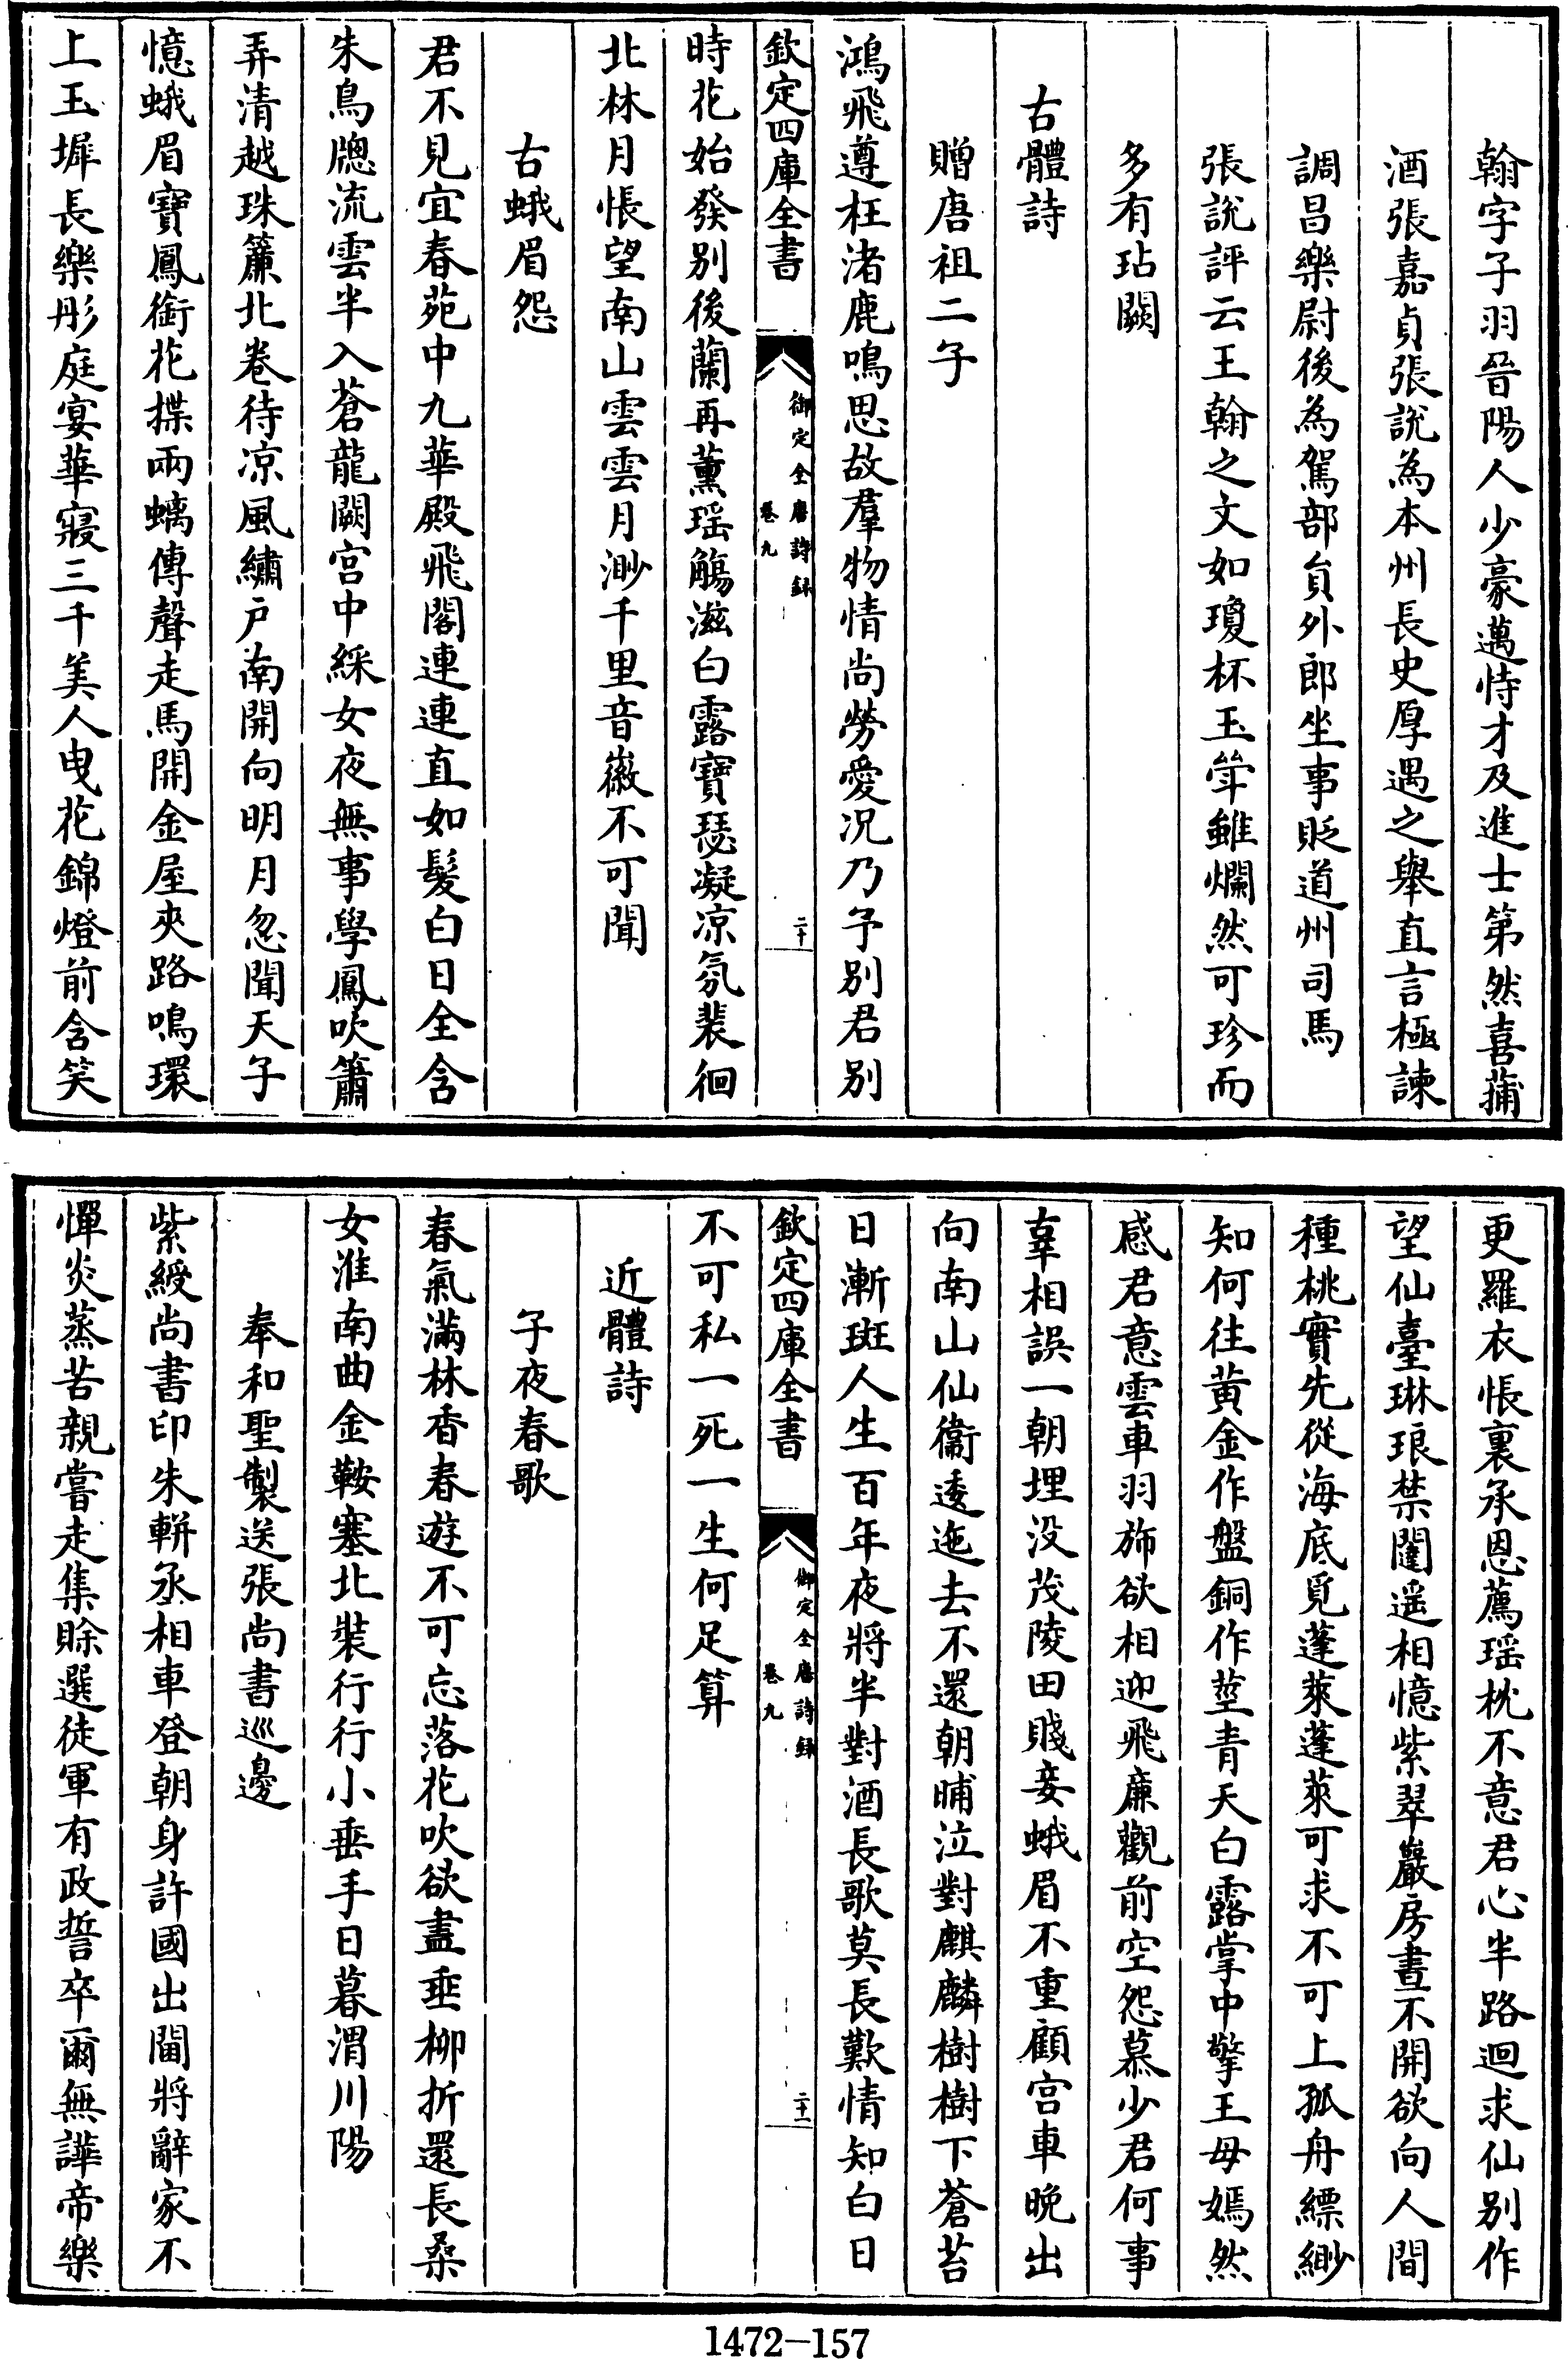 翰字子羽晉陽人少豪邁恃才及進士第然喜蒱
酒張嘉貞張說為本州長史厚遇之舉直言極諫
調昌樂尉後為駕部貟外郎坐事貶道州司馬
張說評云王翰之文如瓊杯玉斝雖爛然可珍而
多有玷闕
古體詩
贈唐祖二子
鴻飛遵枉渚鹿鳴思故羣物情尚勞愛况乃予别君别
欽定四庫全書
御定全唐詩録
卷九
二十
時花始發别後蘭再薰瑶觴滋白露寶瑟凝凉氛裴徊
北林月悵望南山雲雲月渺千里音徽不可聞
古蛾眉怨
君不見宜春苑中九華殿飛閣連連直如髮白日全含
朱鳥牕流雲半入蒼龍闕宫中綵女夜無事學鳳吹簫
弄清越珠簾北卷待凉風繡户南開向明月忽聞天子
憶蛾眉寶鳳銜花揲兩螭傳聲走馬開金屋夾路鳴環
上玉墀長樂彤庭宴華寢三千美人曳花錦燈前含笑
更羅衣悵裏承恩薦瑶枕不意君心半路迴求仙别作
望仙臺琳琅禁闥遥相憶紫翠巖房晝不開欲向人間
種桃實先從海底覓蓬萊蓬萊可求不可上孤舟縹緲
知何往黄金作盤銅作莖青天白露掌中擎王母嫣然
感君意雲車羽斾欲相迎飛亷觀前空怨慕少君何事
辜相誤一朝埋没茂陵田賤妾蛾眉不重顧宫車晚出
向南山仙衞逶迤去不還朝晡泣對麒麟樹樹下蒼苔
日漸斑人生百年夜將半對酒長歌莫長歎情知白日
欽定四庫全書
御定全唐詩録
卷九
二十一
不可私一死一生何足算
近體詩
子夜春歌
春氣滿林香春遊不可忘落花吹欲盡垂柳折還長桑
女淮南曲金鞍塞北裝行行小垂手日暮渭川陽
奉和聖製送張尚書巡邊
紫綬尚書印朱軿丞相車登朝身許國出閫將辭家不
憚炎蒸苦親嘗走集賒選徒軍有政誓卒爾無譁帝樂
1472—157